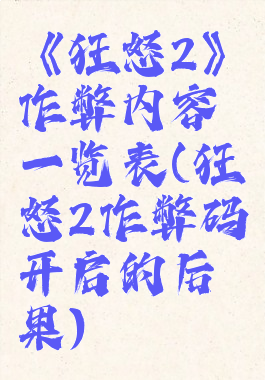 《狂怒2》
作弊内容
一览表(狂
怒2作弊码
开启的后
果)